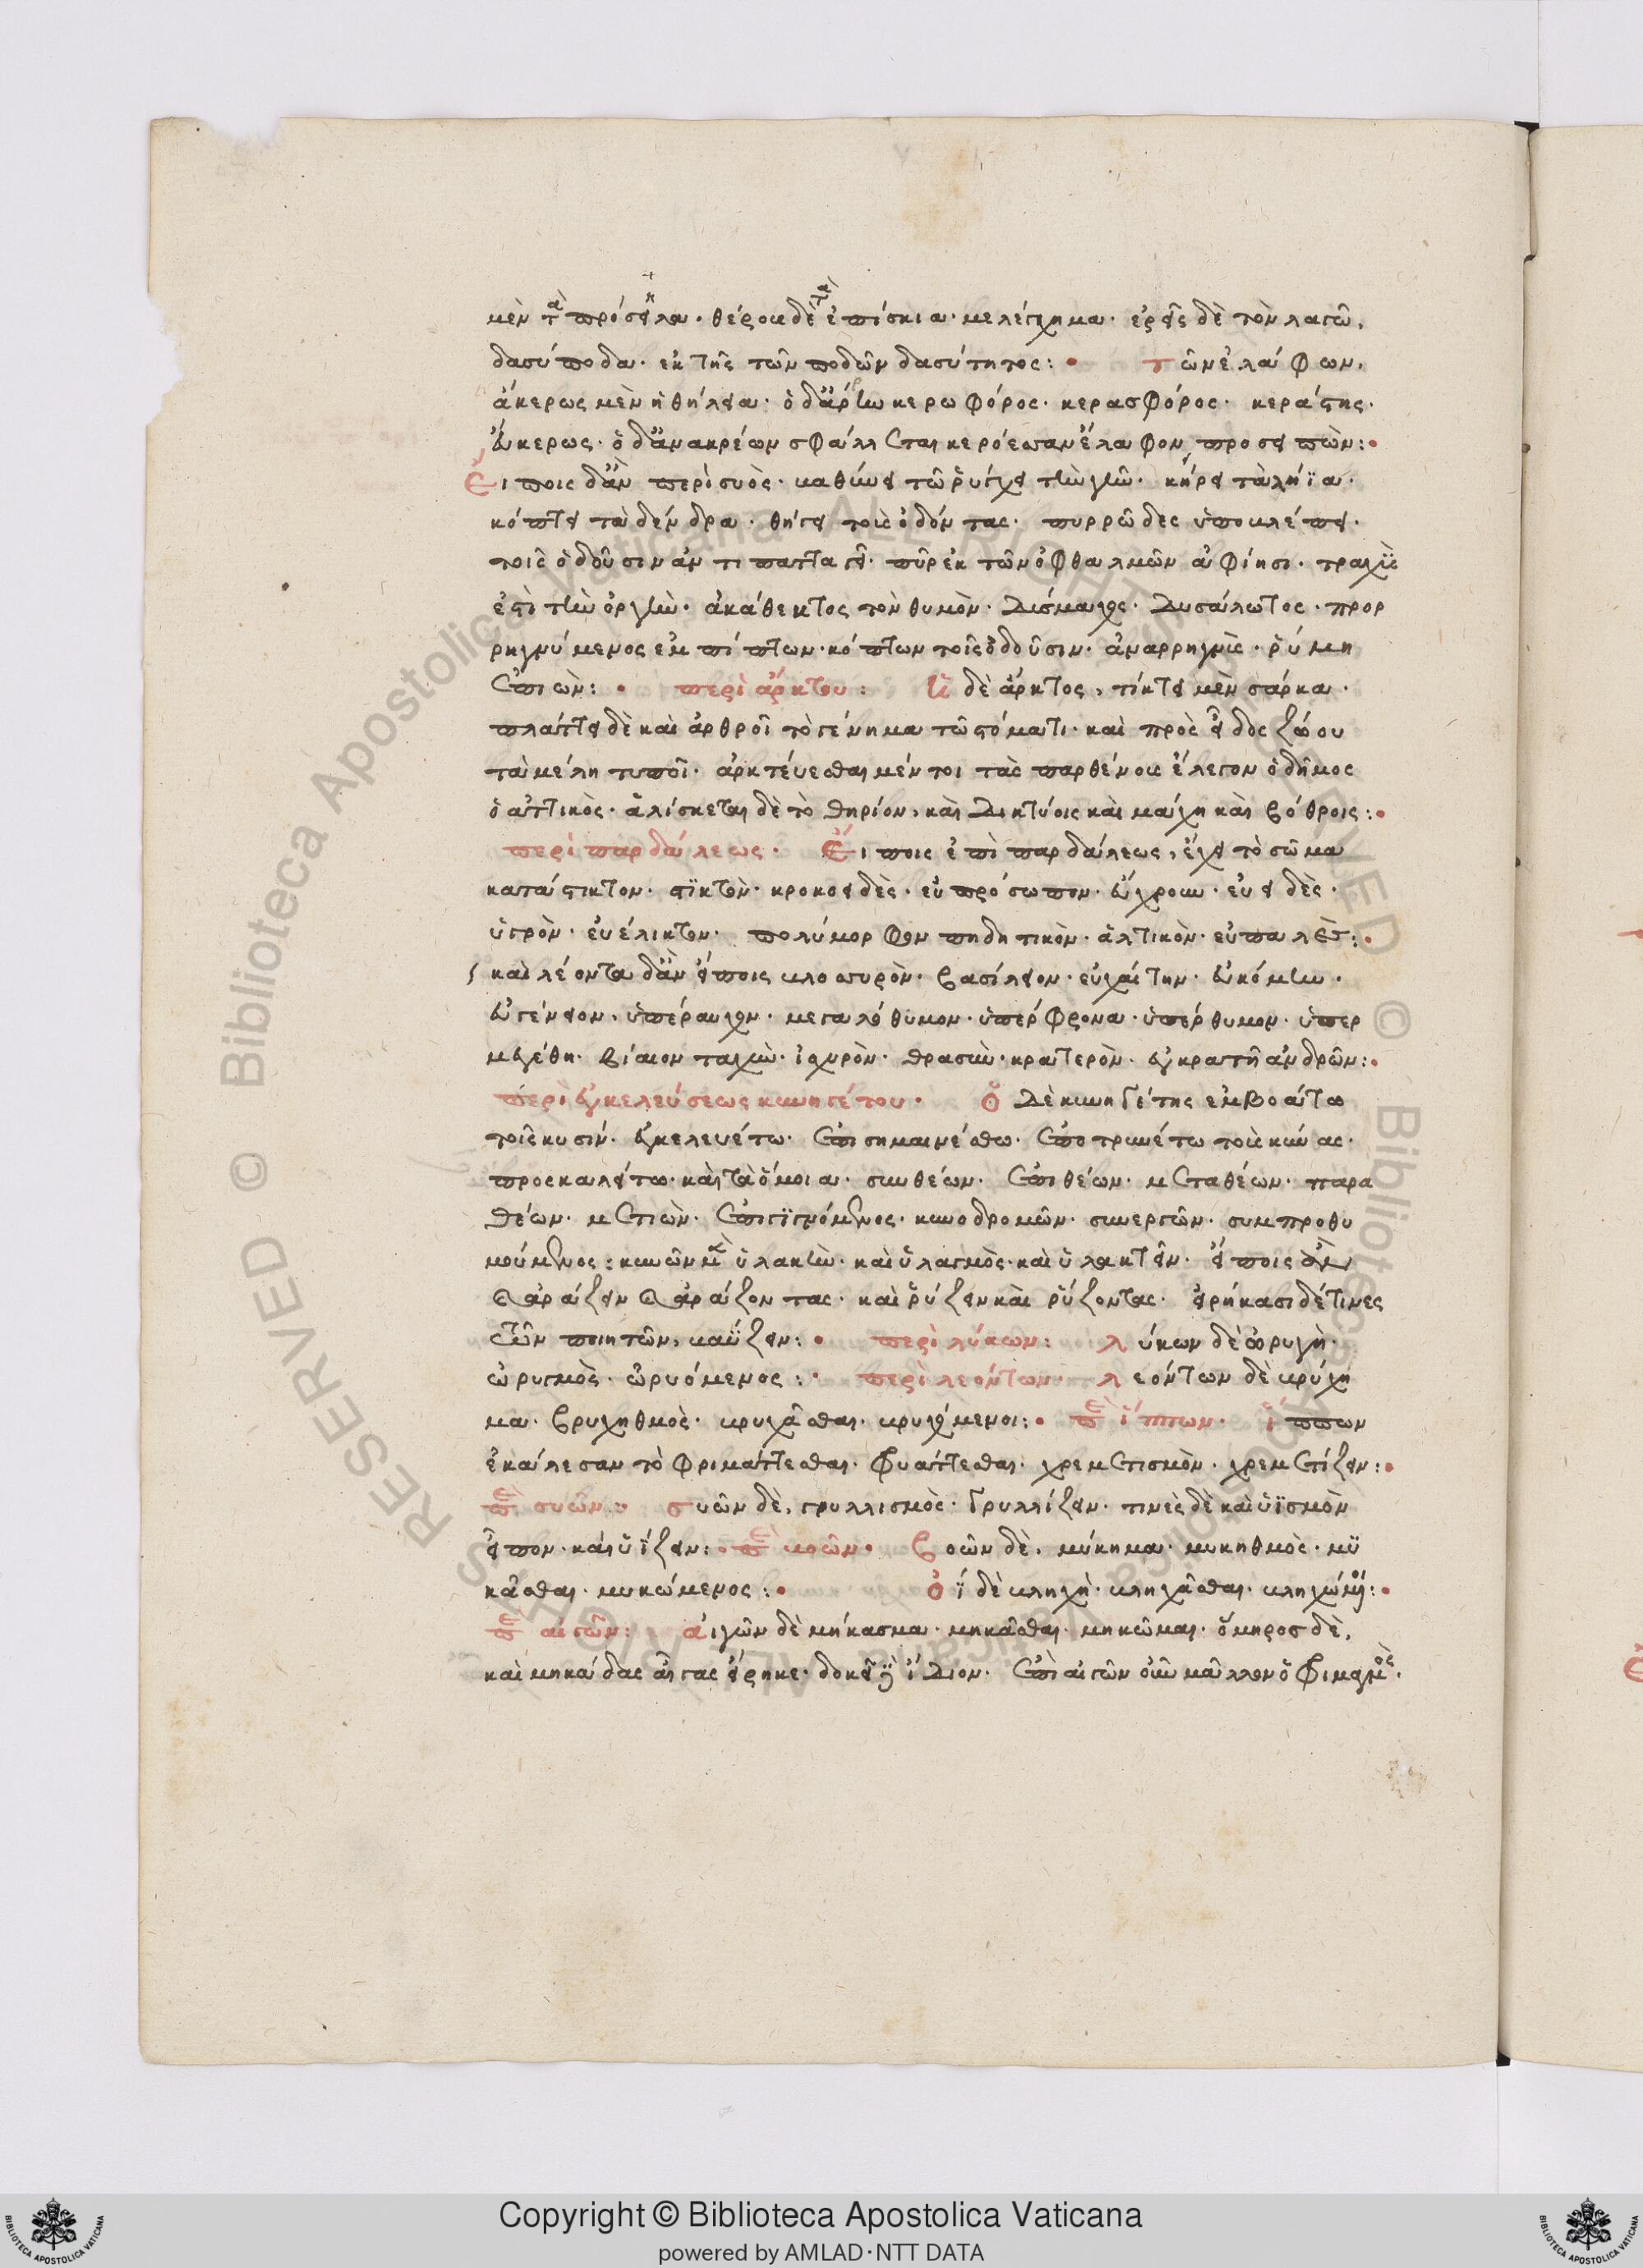 μὲν τὰ πρόσειλα· θέρους δὲ τὰ ἐπίσκια· μελέτημα· ἐρεῖς δὲ τὸν λαγῶ,
δασύποδα· ἐκ τῆς τῶν ποδῶν δασύτητος: τῶν ἐλάφων,
ἄκερως μὲν ἡ θήλεια· ὁ δ' ἄρρην κερωφόρος· κερασφόρος· κεράστης·
εὔκερως· ὁ δ' ἀνακρέων σφάλλεται κερόεσσαν ἔλαφον προσειπών:
Εἴποις δ' ἂν περὶ συὸς· καθίησι τῶ ῥύγχει τὴν γῆν· κείρει τὰ λήϊα·
κόπτει τὰ δένδρα· θήγει τοὺς ὀδόντας· πυρρῶδες ὑποβλέπει·
τοῖς ὀδοῦσιν ἀντιπαταγεῖ· πῦρ ἐκ τῶν ὀφθαλμῶν ἀφίησι· τραχὺς
ἐστὶ τὴν ὀργὴν· ἀκάθεκτος τὸν θυμὸν· δύσμαχος· δυσάλωτος· προρ
ρηγνύμενος ἐμπίπτων· κόπτων τοῖς ὀδοῦσιν· ἀναρρηγνὺς· ῥύμη
ἐπιών: περὶ ἄρκτου: Ἡ δὲ ἄρκτος, τίκτει μὲν σάρκα·
πλάττει δὲ καὶ ἀρθροῖ τὸ γέννημα τῶ στόματι· καὶ πρὸς εἶδος ζώου
τὰ μέλη τυποῖ· ἀρκτεύεσθαι μέντοι τὰς παρθένους ἔλεγον ὁ δῆμος
ὁ ἀττικὸς· ἁλίσκεται δὲ τὸ θηρίον, καὶ δικτύοις καὶ μάχη καὶ βόθροις:
περὶ παρδάλεως· Εἴποις ἐπὶ παρδάλεως, ἔχει τὸ σῶμα
κατάστικτον· στϊκτὸν· κροκοειδὲς· εὐπρόσωπον· εὔχρουν· εὐειδὲς·
ὑγρὸν· εὐέλικτον· πολύμορφον πηδητικὸν· ἁλτικὸν· εὐπαλὲς:
καὶ λέοντα δ' ἂν εἴποις βλοσυρὸν· βασίλειον· εὐχαίτην· εὐκόμην·
εὐγένειον· ὑπέραυχον· μεγαλόθυμον· ὑπέρφρονα· ὑπέρθυμον· ὑπερ
μεγέθη· βίαιον ταχὺν· ἰσχυρὸν· θρασὺν· κρατερὸν· ἐγκρατῆ ἀνδρῶν:
περὶ ἐγκελεύσεως κυνηγέτου· Ὁ δὲ κυνηγέτης ἐμβοάτω
τοῖς κυσίν· ἐγκελευέτω· ἐπισημαινέσθω· ἐποτρυνέτω τοὺς κύνας·
προσκαλείτω· καὶ τὰ ὅμοια· συνθέων· ἐπιθέων· μεταθέων· παρα
θέων· μετιὼν· ἐπιγϊγνόμενος· κυνοδρομῶν· συνεργῶν· συμπροθυ
μούμενος: κυνῶν μὲν ὑλακὴν· καὶ ὑλαγμὸς· καὶ ὑλακτεῖν· εἴποις ἂν
ἀράζειν ἀράζοντας· καὶ ῥύζειν καὶ ῥύζοντας· εἰρήκασι δέ τινες
τῶν ποιητῶν, καΰζειν: περὶ λύκων: λύκων δὲ ὠρυγὴ·
ὠρυγμὸς· ὠρυόμενος: περὶ λεόντων· λεόντων δὲ βρύχη
μα· βρυχηθμὸς· βρυχᾶσθαι· βρυχώμενοι: περὶ ἵππων· ἵππων
ἐκάλεσαν τὸ φριμάττεσθαι· φυάττεσθαι· χρεμετισμὸν· χρεμετίζειν:
περὶ συῶν: συῶν δὲ, γρυλλισμὸς· γρυλλίζειν· τινὲς δὲ καὶ ὑϊσμὸν
εἶπον· καὶ ὑΐζειν: περὶ βοῶν· βοῶν δὲ, μύκημα· μυκηθμὸς· μϋ
κᾶσθαι· μυκώμενος: ὀΐ δὲ βληχὴ· βληχᾶσθαι· βληχώμεναι:
περὶ αἰγῶν: αἰγῶν δὲ μήκασμα· μηκᾶσθαι· μηκῶμαι· ὅμηρος δὲ,
καὶ μηκάδας αἶγας εἴρηκε· δοκεῖ ἴδιον· ἐπὶ αἰγῶν οὖν μᾶλλον ὁ φιμαγμὸς·